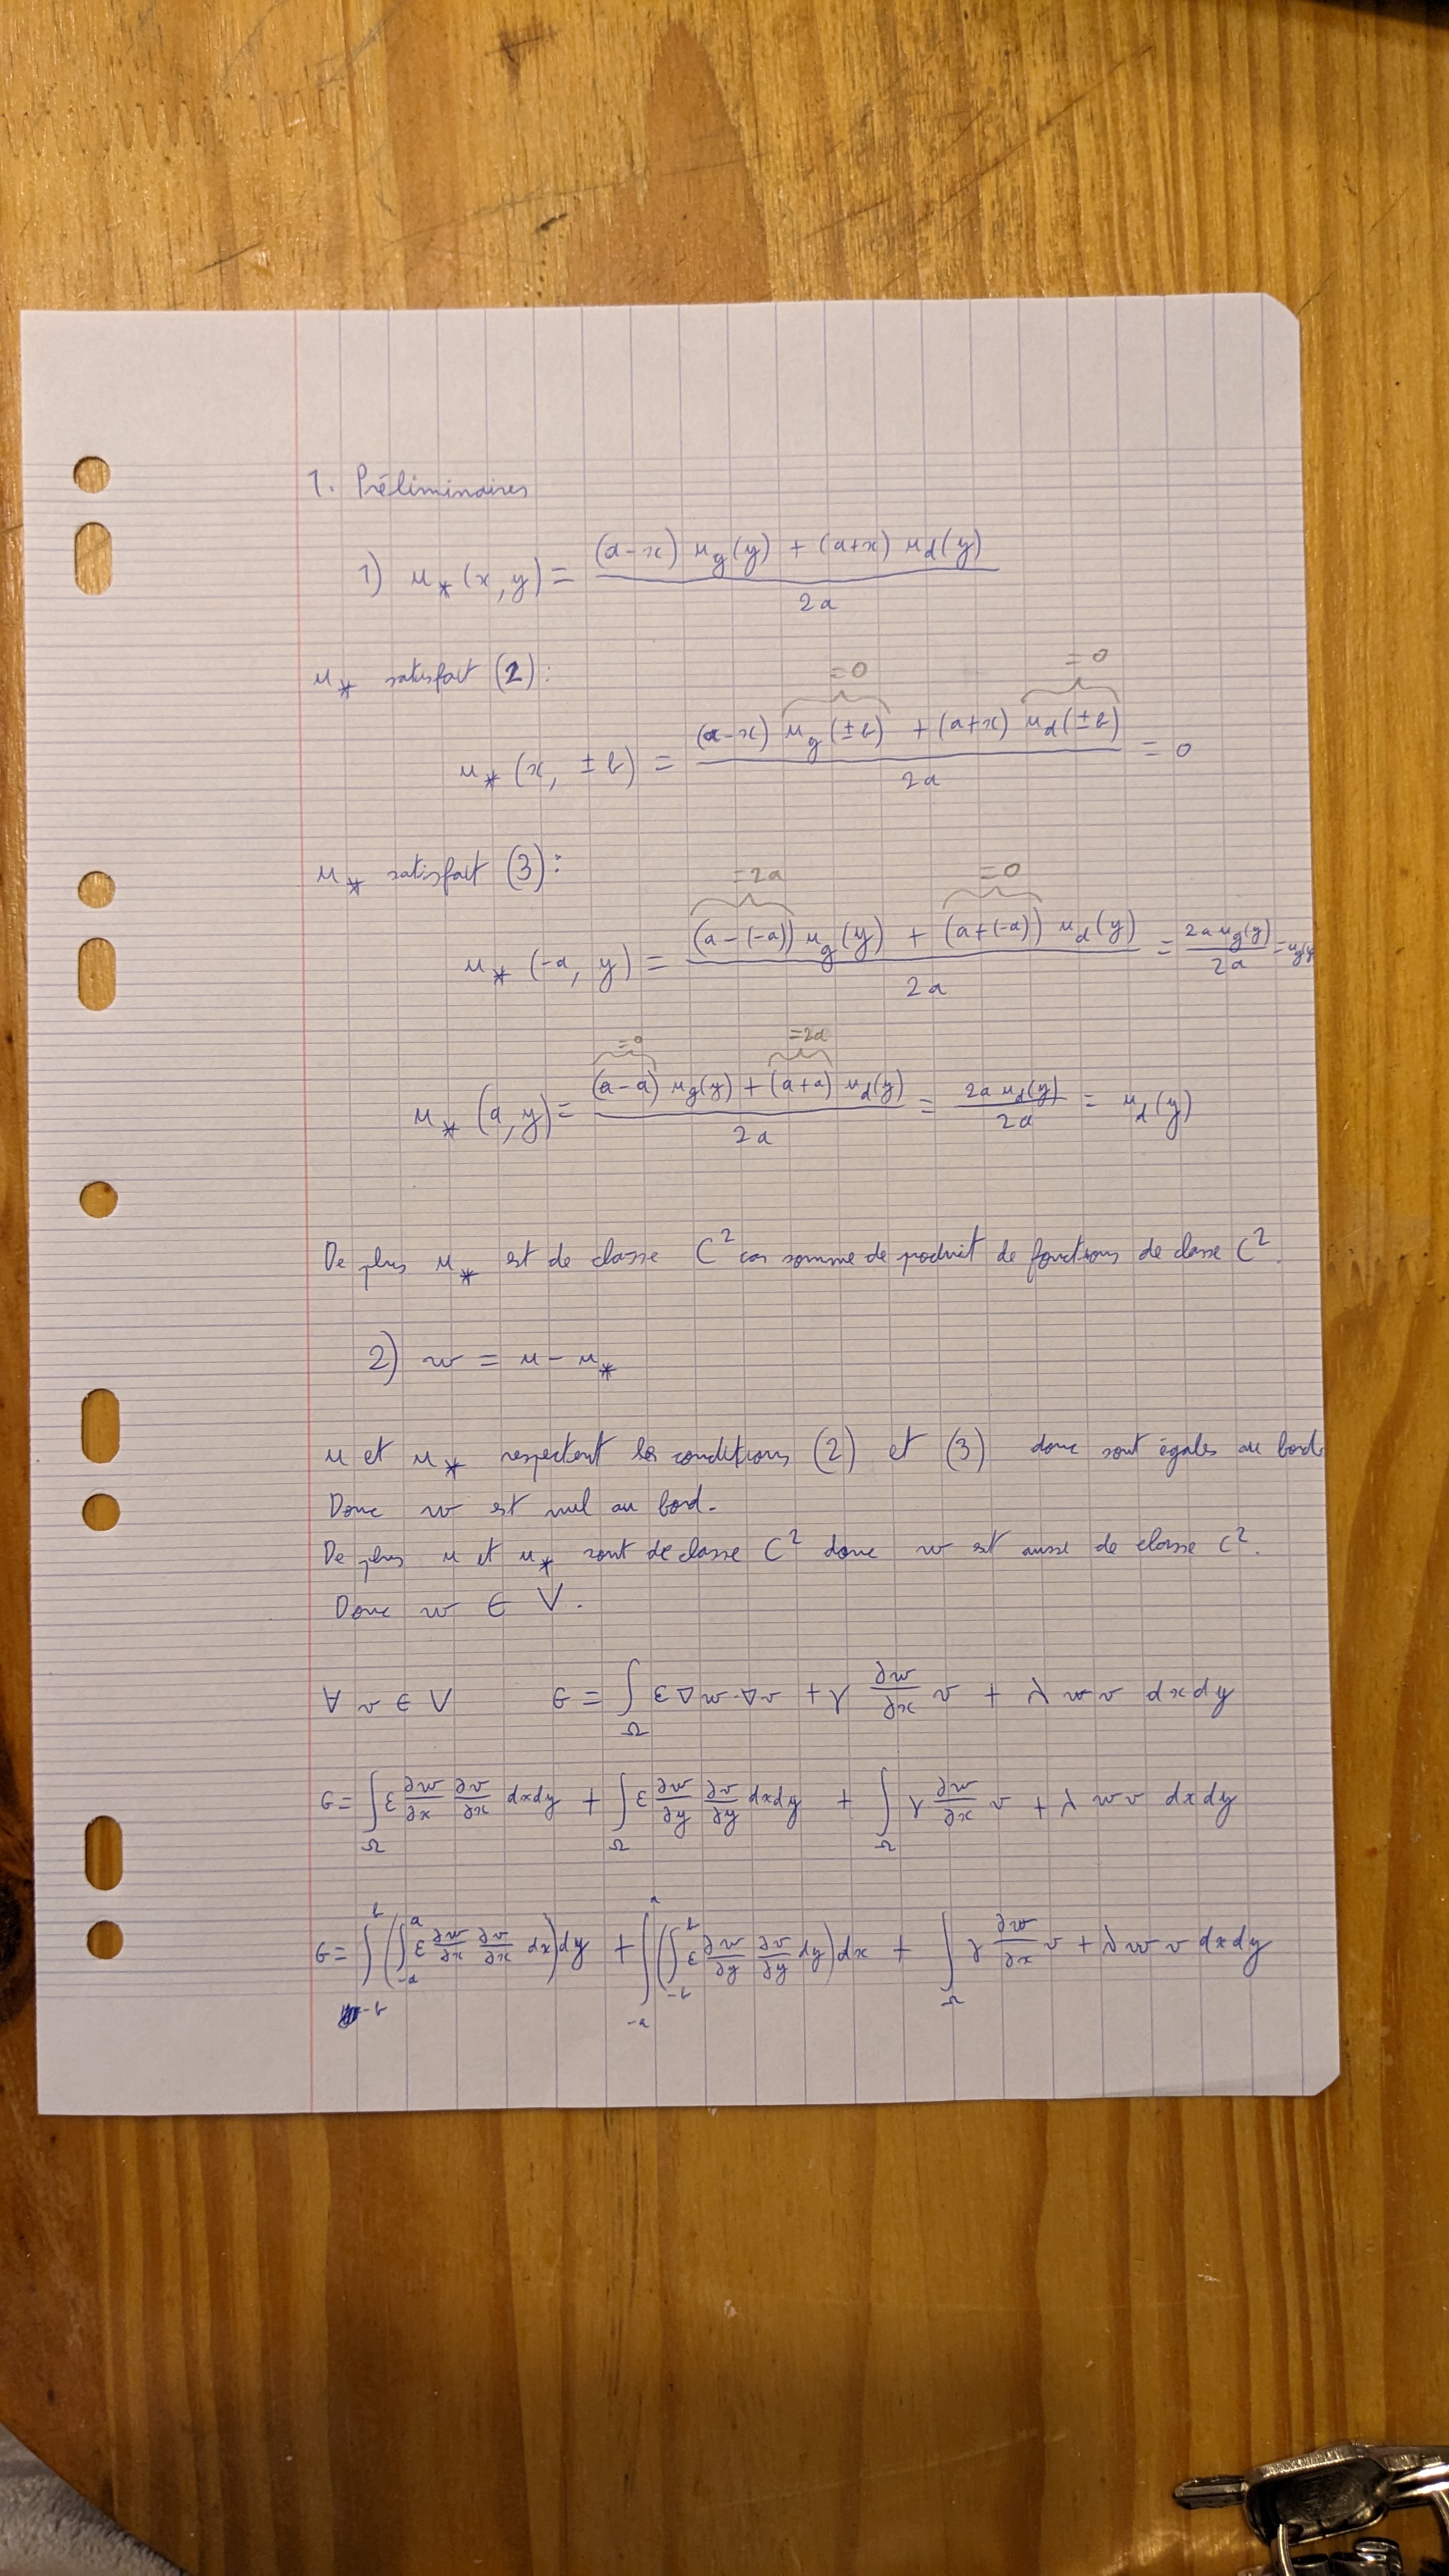 1. Préliminaires
1) u_*(x,y) = ((a-x) u_g(y) + (a+x) u_d(y)) / 2a
u_* satisfait (2):
=0 =0
u_*(x, ±b) = ((a-x) u_g(±b) + (a+x) u_d(±b)) / 2a = 0
u_* satisfait (3):
=2a =0
u_*(-a, y) = ((a-(-a)) u_g(y) + (a+(-a)) u_d(y)) / 2a = 2a u_g(y) / 2a = u_g(y
=0 =2a
u_*(a,y) = ((a-a) u_g(y) + (a+a) u_d(y)) / 2a = 2a u_d(y) / 2a = u_d(y)
De plus u_* est de classe C² car somme de produit de fonctions de classe C².
2) w = u - u_*
u et u_* respectent les conditions (2) et (3) donc sont égales au bord
Donc w est nul au bord.
De plus u et u_* sont de classe C² donc w est aussi de classe C².
Donc w ∈ V.
∀ v ∈ V G = ∫_Ω ε ∇w·∇v + γ ∂w/∂x v + λ w v dxdy
G = ∫_Ω ε ∂w/∂x ∂v/∂x dxdy + ∫_Ω ε ∂w/∂y ∂v/∂y dxdy + ∫_Ω γ ∂w/∂x v + λ w v dxdy
G = ∫_{-b}^{b} (∫_{-a}^{a} ε ∂w/∂x ∂v/∂x dx) dy + ∫_{-a}^{a} (∫_{-b}^{b} ε ∂w/∂y ∂v/∂y dy) dx + ∫_Ω γ ∂w/∂x v + λ w v dxdy